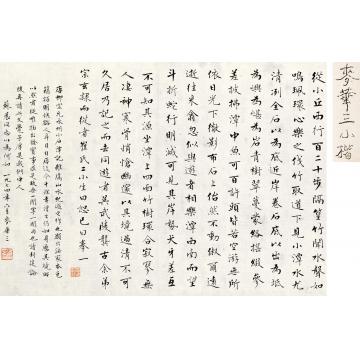 麥華三小楷
從小丘西行百二十步隔篁竹聞水聲如
鳴珮環心樂之伐竹取道下見小潭水尤
清洌全石以為底近岸卷石底以出為坻
為嶼為嵁為岩青樹翠蔓蒙絡搖綴參
差披拂潭中魚可百許頭皆若空游無所
依日光下徹影布石上佁然不動俶爾遠
逝往來翕忽似與游者相樂潭西南而望
斗折蛇行明滅可見其岸勢犬牙差互
不可知其源坐潭上四面竹樹環合寂寥無
人淒神寒骨悄愴幽邃以其境過清不可
久居乃記之而去同遊者吳武陵龔古余弟
宗玄隸而從者崔氏二小生曰恕己曰奉一
唐柳宗元永州小石潭記
蘇晨同志以為何如一九七四年六月麥華三